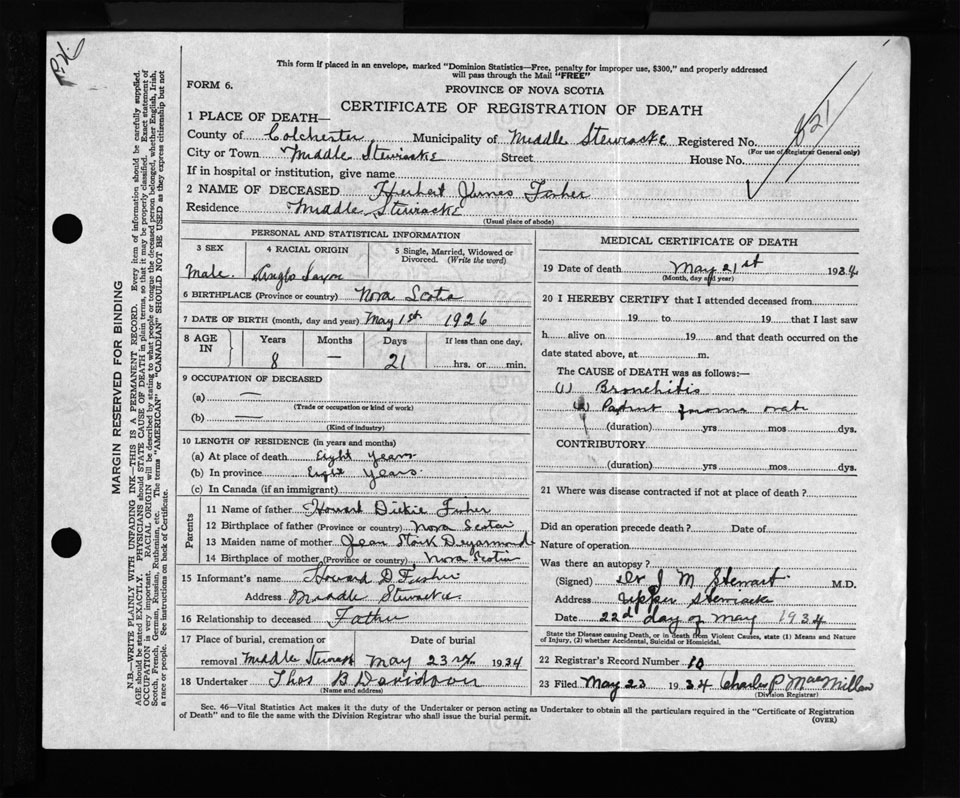 P.H.
This form if placed in an envelope, marked "Dominion Statistics—Free, penalty for improper use, $300," and properly addressed
will pass through the Mail "FREE"
FORM 6.
PROVINCE OF NOVA SCOTIA
CERTIFICATE OF REGISTRATION OF DEATH
821
1 PLACE OF DEATH—
County of Colchester Municipality of Middle Stewiacke Registered No.
(For use of Registrar General only)
City or Town Middle Stewiacke Street House No.
If in hospital or institution, give name
2 NAME OF DECEASED Herbert James Fisher
Residence Middle Stewiacke
(Usual place of abode)
PERSONAL AND STATISTICAL INFORMATION
3 SEX 4 RACIAL ORIGIN 5 Single, Married, Widowed or
Divorced. (Write the word)
Male. Anglo Saxon
6 BIRTHPLACE (Province or country) Nova Scotia
7 DATE OF BIRTH (month, day and year) May 1st 1926
8 AGE IN Years Months Days If less than one day,
8 — 21 hrs. or min.
9 OCCUPATION OF DECEASED
(a) —
(Trade or occupation or kind of work)
(b) —
(Kind of industry)
10 LENGTH OF RESIDENCE (in years and months)
(a) At place of death Eight Years
(b) In province Eight Years.
(c) In Canada (if an immigrant)
Parents
11 Name of father Howard Dickie Fisher
12 Birthplace of father (Province or country) Nova Scotia
13 Maiden name of mother Jean Deyarmond
14 Birthplace of mother (Province or country) Nova Scotia
15 Informant's name Howard D. Fisher
Address Middle Stewiacke
16 Relationship to deceased Father
17 Place of burial, cremation or Date of burial
removal Middle Stewiacke May 23rd 1934
18 Undertaker Thos B Davidson
(Name and address)
MEDICAL CERTIFICATE OF DEATH
19 Date of death May 21st 1934
(Month, day and year)
20 I HEREBY CERTIFY that I attended deceased from
19 to 19 that I last saw
h alive on 19 and that death occurred on the
date stated above, at m.
The CAUSE of DEATH was as follows:—
(1) Bronchitis
(2)
(duration) yrs mos dys.
CONTRIBUTORY
(duration) yrs mos dys.
21 Where was disease contracted if not at place of death?
Did an operation precede death? Date of
Nature of operation
Was there an autopsy?
(Signed) Dr J M Stewart M.D.
Address Upper Stewiacke
Date 22nd day of May 1934
State the Disease causing Death, or in death from Violent Causes, state (1) Means and Nature
of Injury, (2) whether Accidental, Suicidal or Homicidal.
22 Registrar's Record Number 10
23 Filed May 23 1934 Charles P. MacMillan
(Division Registrar)
Sec. 46—Vital Statistics Act makes it the duty of the Undertaker or person acting as Undertaker to obtain all the particulars required in the "Certificate of Registration
of Death" and to file the same with the Division Registrar who shall issue the burial permit.
(OVER)
MARGIN RESERVED FOR BINDING
N.B.—WRITE PLAINLY WITH UNFADING INK—THIS IS A PERMANENT RECORD. Every item of information should be carefully supplied.
AGE should be stated EXACTLY. PHYSICIANS should STATE CAUSE OF DEATH in plain terms, so that it may be properly classified. Exact statement of
OCCUPATION is very important. RACIAL ORIGIN will be described by stating to what people or tongue the deceased person belonged, whether English, Irish,
Scotch, French, German, Russian, Ruthenian, etc. The terms "AMERICAN" or "CANADIAN" SHOULD NOT BE USED as they express citizenship but not
a race or people. See instructions on back of Certificate.